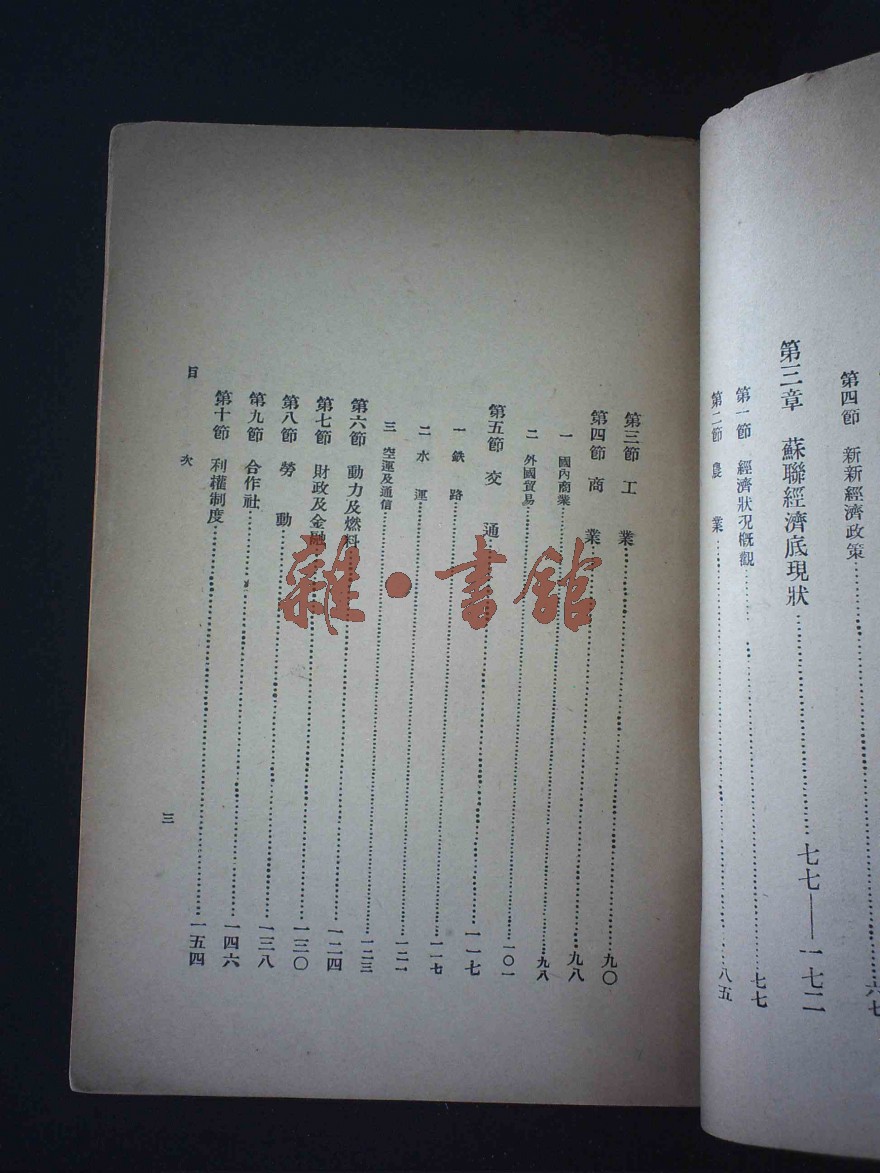 第四節　新新經濟政策……六七
第三章　蘇聯經濟底現狀……七七——一七二
第一節　經濟狀況概觀……七七
第二節　農業……八五
第三節　工業……九〇
第四節　商業……九八
一　國內商業……九八
二　外國貿易……一〇一
第五節　交通……一一七
一　鉄路……一一七
二　水運……一二一
三　空運及通信……一二三
第六節　動力及燃料……一二四
第七節　財政及金融……一三〇
第八節　勞動……一三八
第九節　合作社……一四六
第十節　利權制度……一五四
目次
三
雜·書館